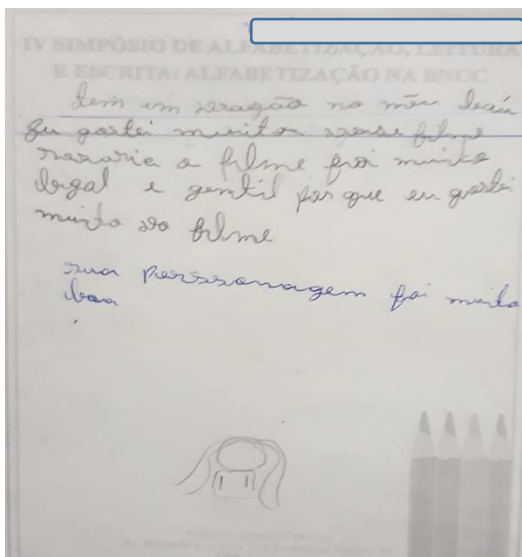 IV SIMPÓSIO DE ALFABETIZAÇÃO, LEITURA
E ESCRITA: ALFABETIZAÇÃO NA BNCC
tem um dragão no meu
Eu gostei muito desse filme
o filme foi muito
legal e gentil por que eu gostei
muito do filme
sua perssonagem foi muito
boa